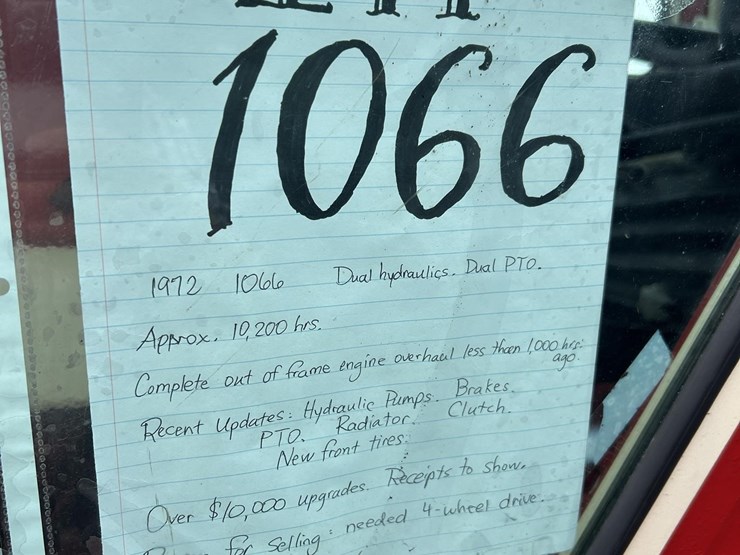 1066
1972 1066 Dual hydraulics. Dual PTO.
Approx. 10,200 hrs.
Complete out of frame engine overhaul less than 1,000 hrs.
ago.
Recent Updates: Hydraulic Pumps. Brakes.
PTO. Radiator. Clutch.
New front tires.
Over $10,000 upgrades. Receipts to show.
for selling: needed 4-wheel drive.